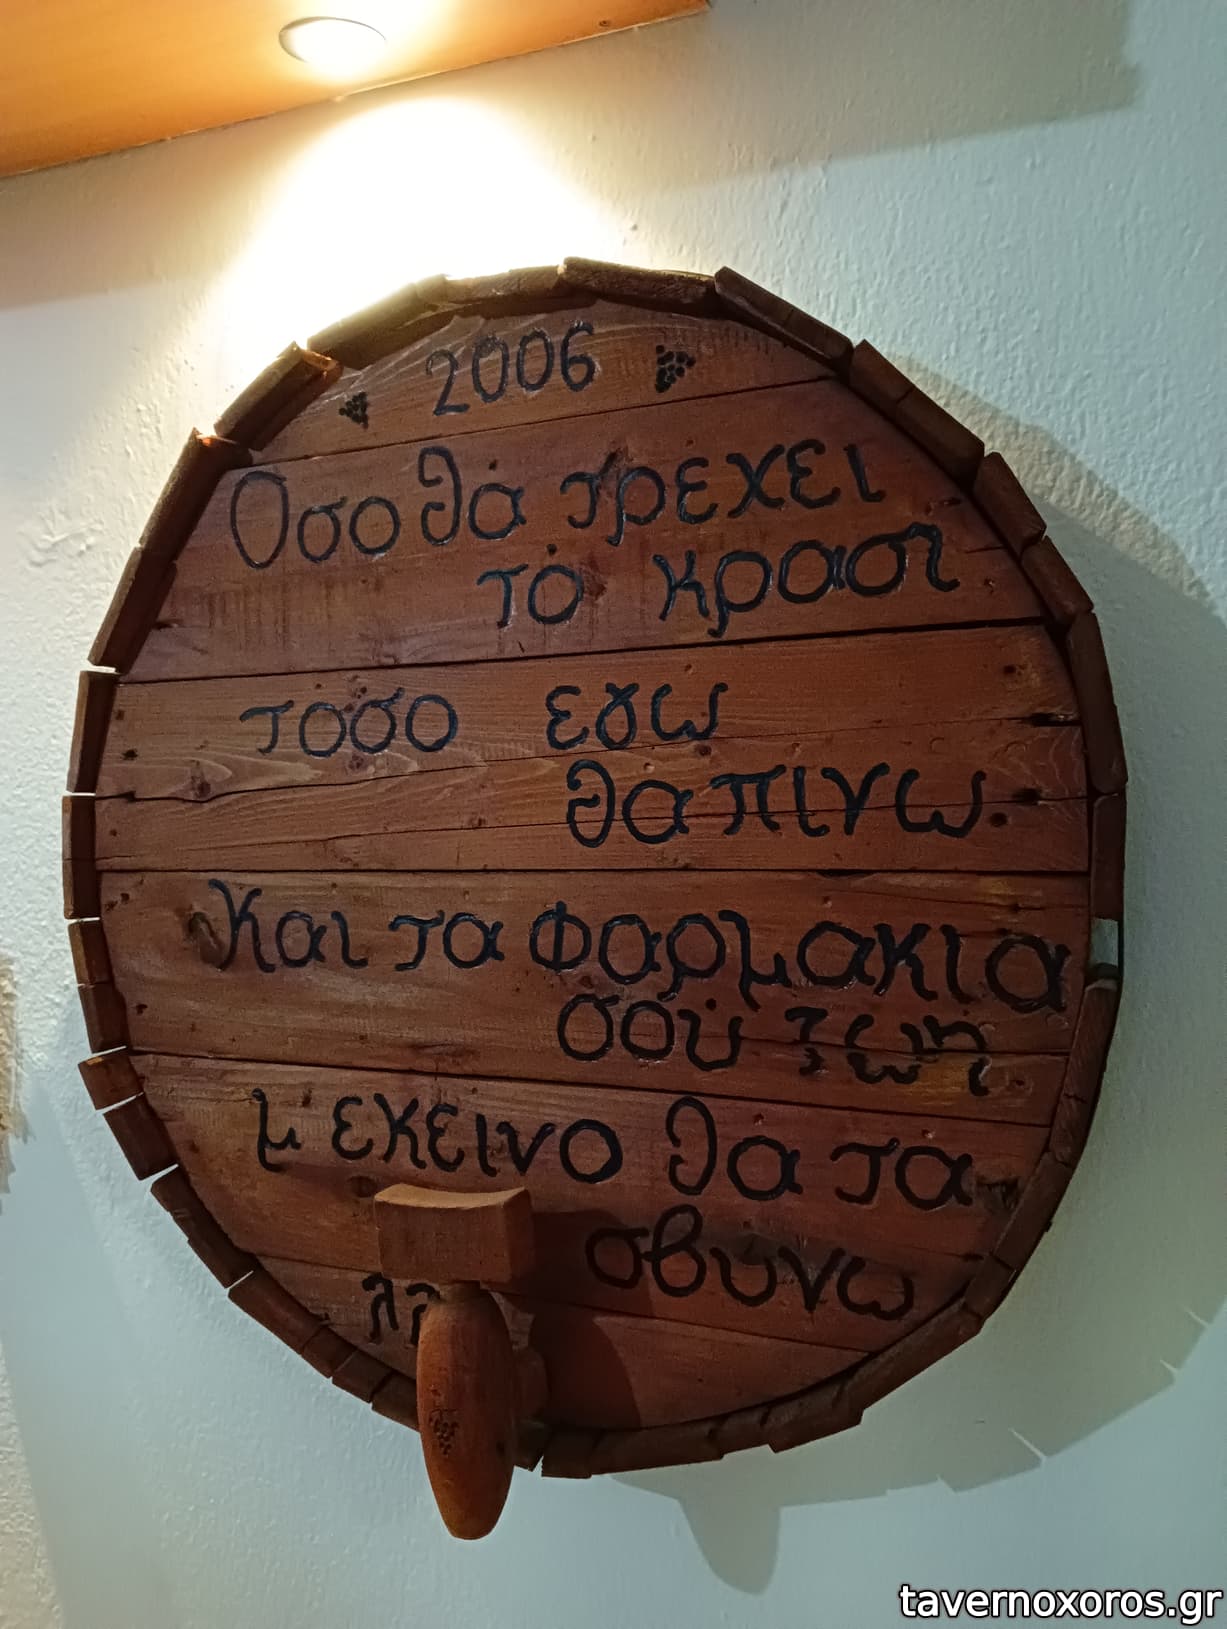 2006
Οσο θα τρεχει
το κρασι
τοσο εγω
θα πινω
Και τα φαρμακια
σου ζωη
μ εκεινο θα τα
σβυνω
tavernoxoros.gr